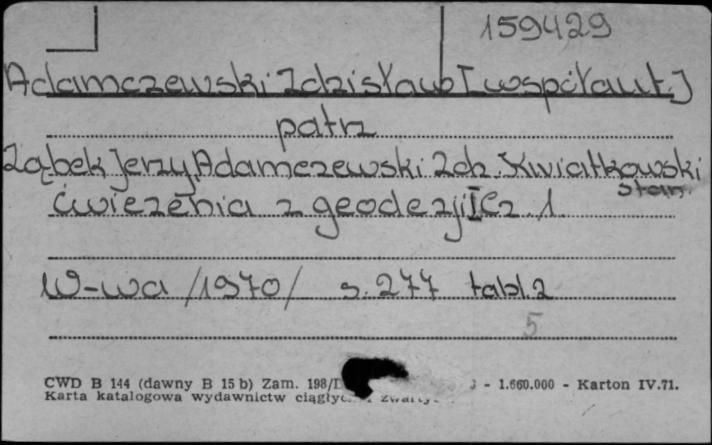 159429
Adamczewski Zdzisław [współaut.]
patrz
Ząbek Jerzy, Adamczewski Zdz. Kwiatkowski
Stan.
Ćwiczenia z geodezji I Cz. 1.
W-wa /1970/ s. 277 tabl. 2
5
CWD B 144 (dawny B 15 b) Zam. 198/ - 1.660.000 - Karton IV.71.
Karta katalogowa wydawnictw